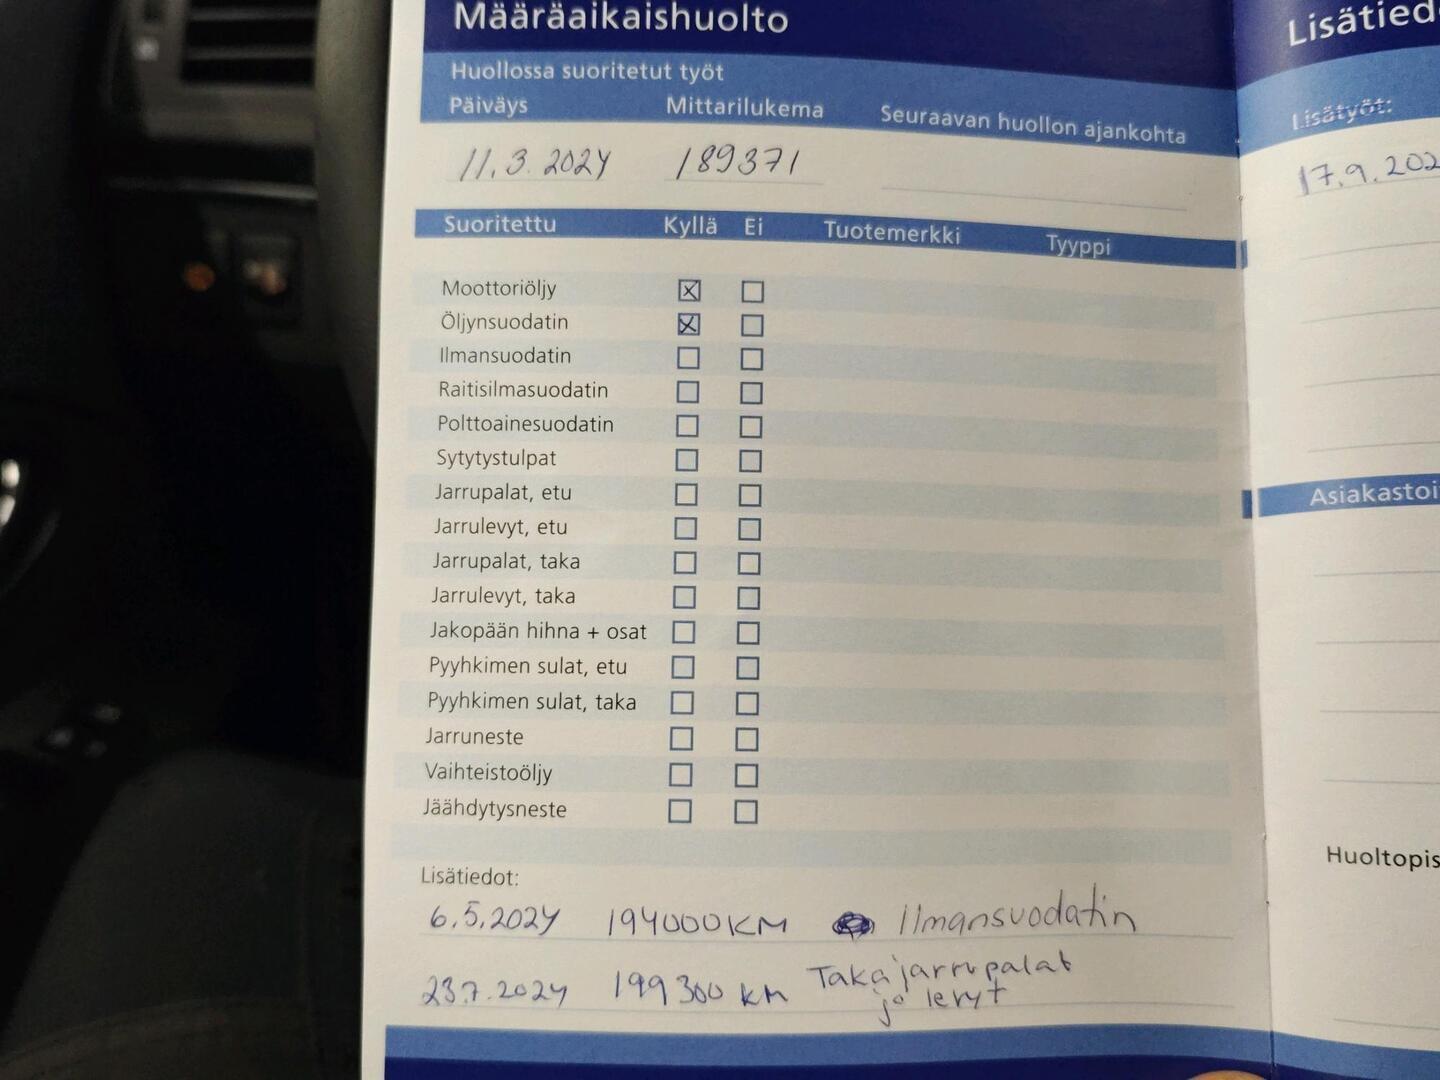 Määräaikaishuolto
Huollossa suoritetut työt
Päiväys Mittarilukema Seuraavan huollon ajankohta
11.3.2024 189371
Suoritettu Kyllä Ei Tuotemerkki Tyyppi
Moottoriöljy
Öljynsuodatin
Ilmansuodatin
Raitisilmasuodatin
Polttoainesuodatin
Sytytystulpat
Jarrupalat, etu
Jarrulevyt, etu
Jarrupalat, taka
Jarrulevyt, taka
Jakopään hihna + osat
Pyyhkimen sulat, etu
Pyyhkimen sulat, taka
Jarruneste
Vaihteistoöljy
Jäähdytysneste
Lisätiedot:
6.5.2024 194000KM Ilmansuodatin
23.7.2024 199300 KM Taka jarrupalat
ja levyt
Lisätied
Lisätyöt:
17.9.202
Asiakastoi
Huoltopis